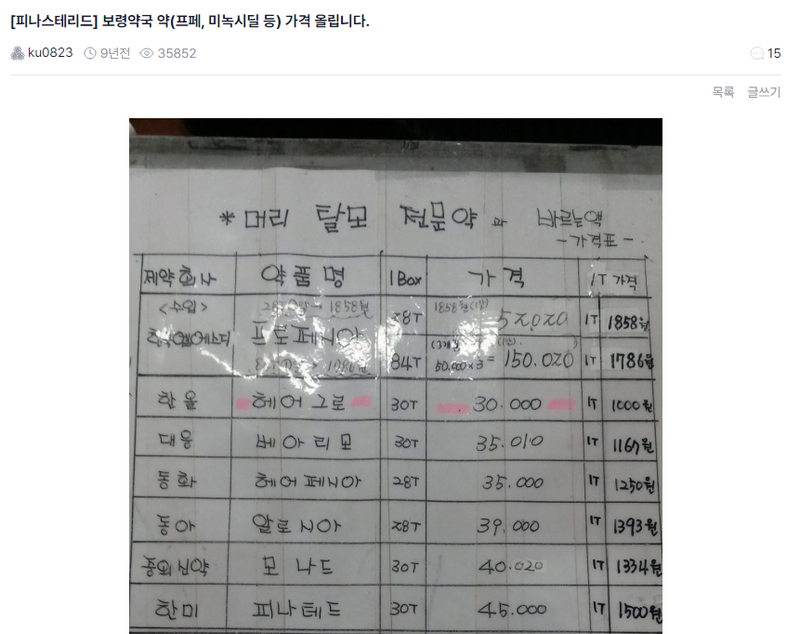 [피나스테리드] 보령약국 약(프페, 미녹시딜 등) 가격 올립니다.
ku0823 9년전 35852 15
목록 글쓰기
* 머리 탈모 전문약 과 바르는액
- 가격표 -
제약회사 약품명 1Box 가격 1T 가격
<수입> 1858원
프로페시아 28T 52,020 1T 1858원
84T 50,000×3 = 150.020 1T 1786원
한올 헤어그로 30T 30.000 1T 1000원
대웅 베아리모 30T 35.010 1T 1167원
동화 헤어페시아 28T 35.000 1T 1250원
동아 알로시아 28T 39.000 1T 1393원
중외신약 모나드 30T 40.020 1T 1334원
한미 피나테드 30T 45.000 1T 1500원